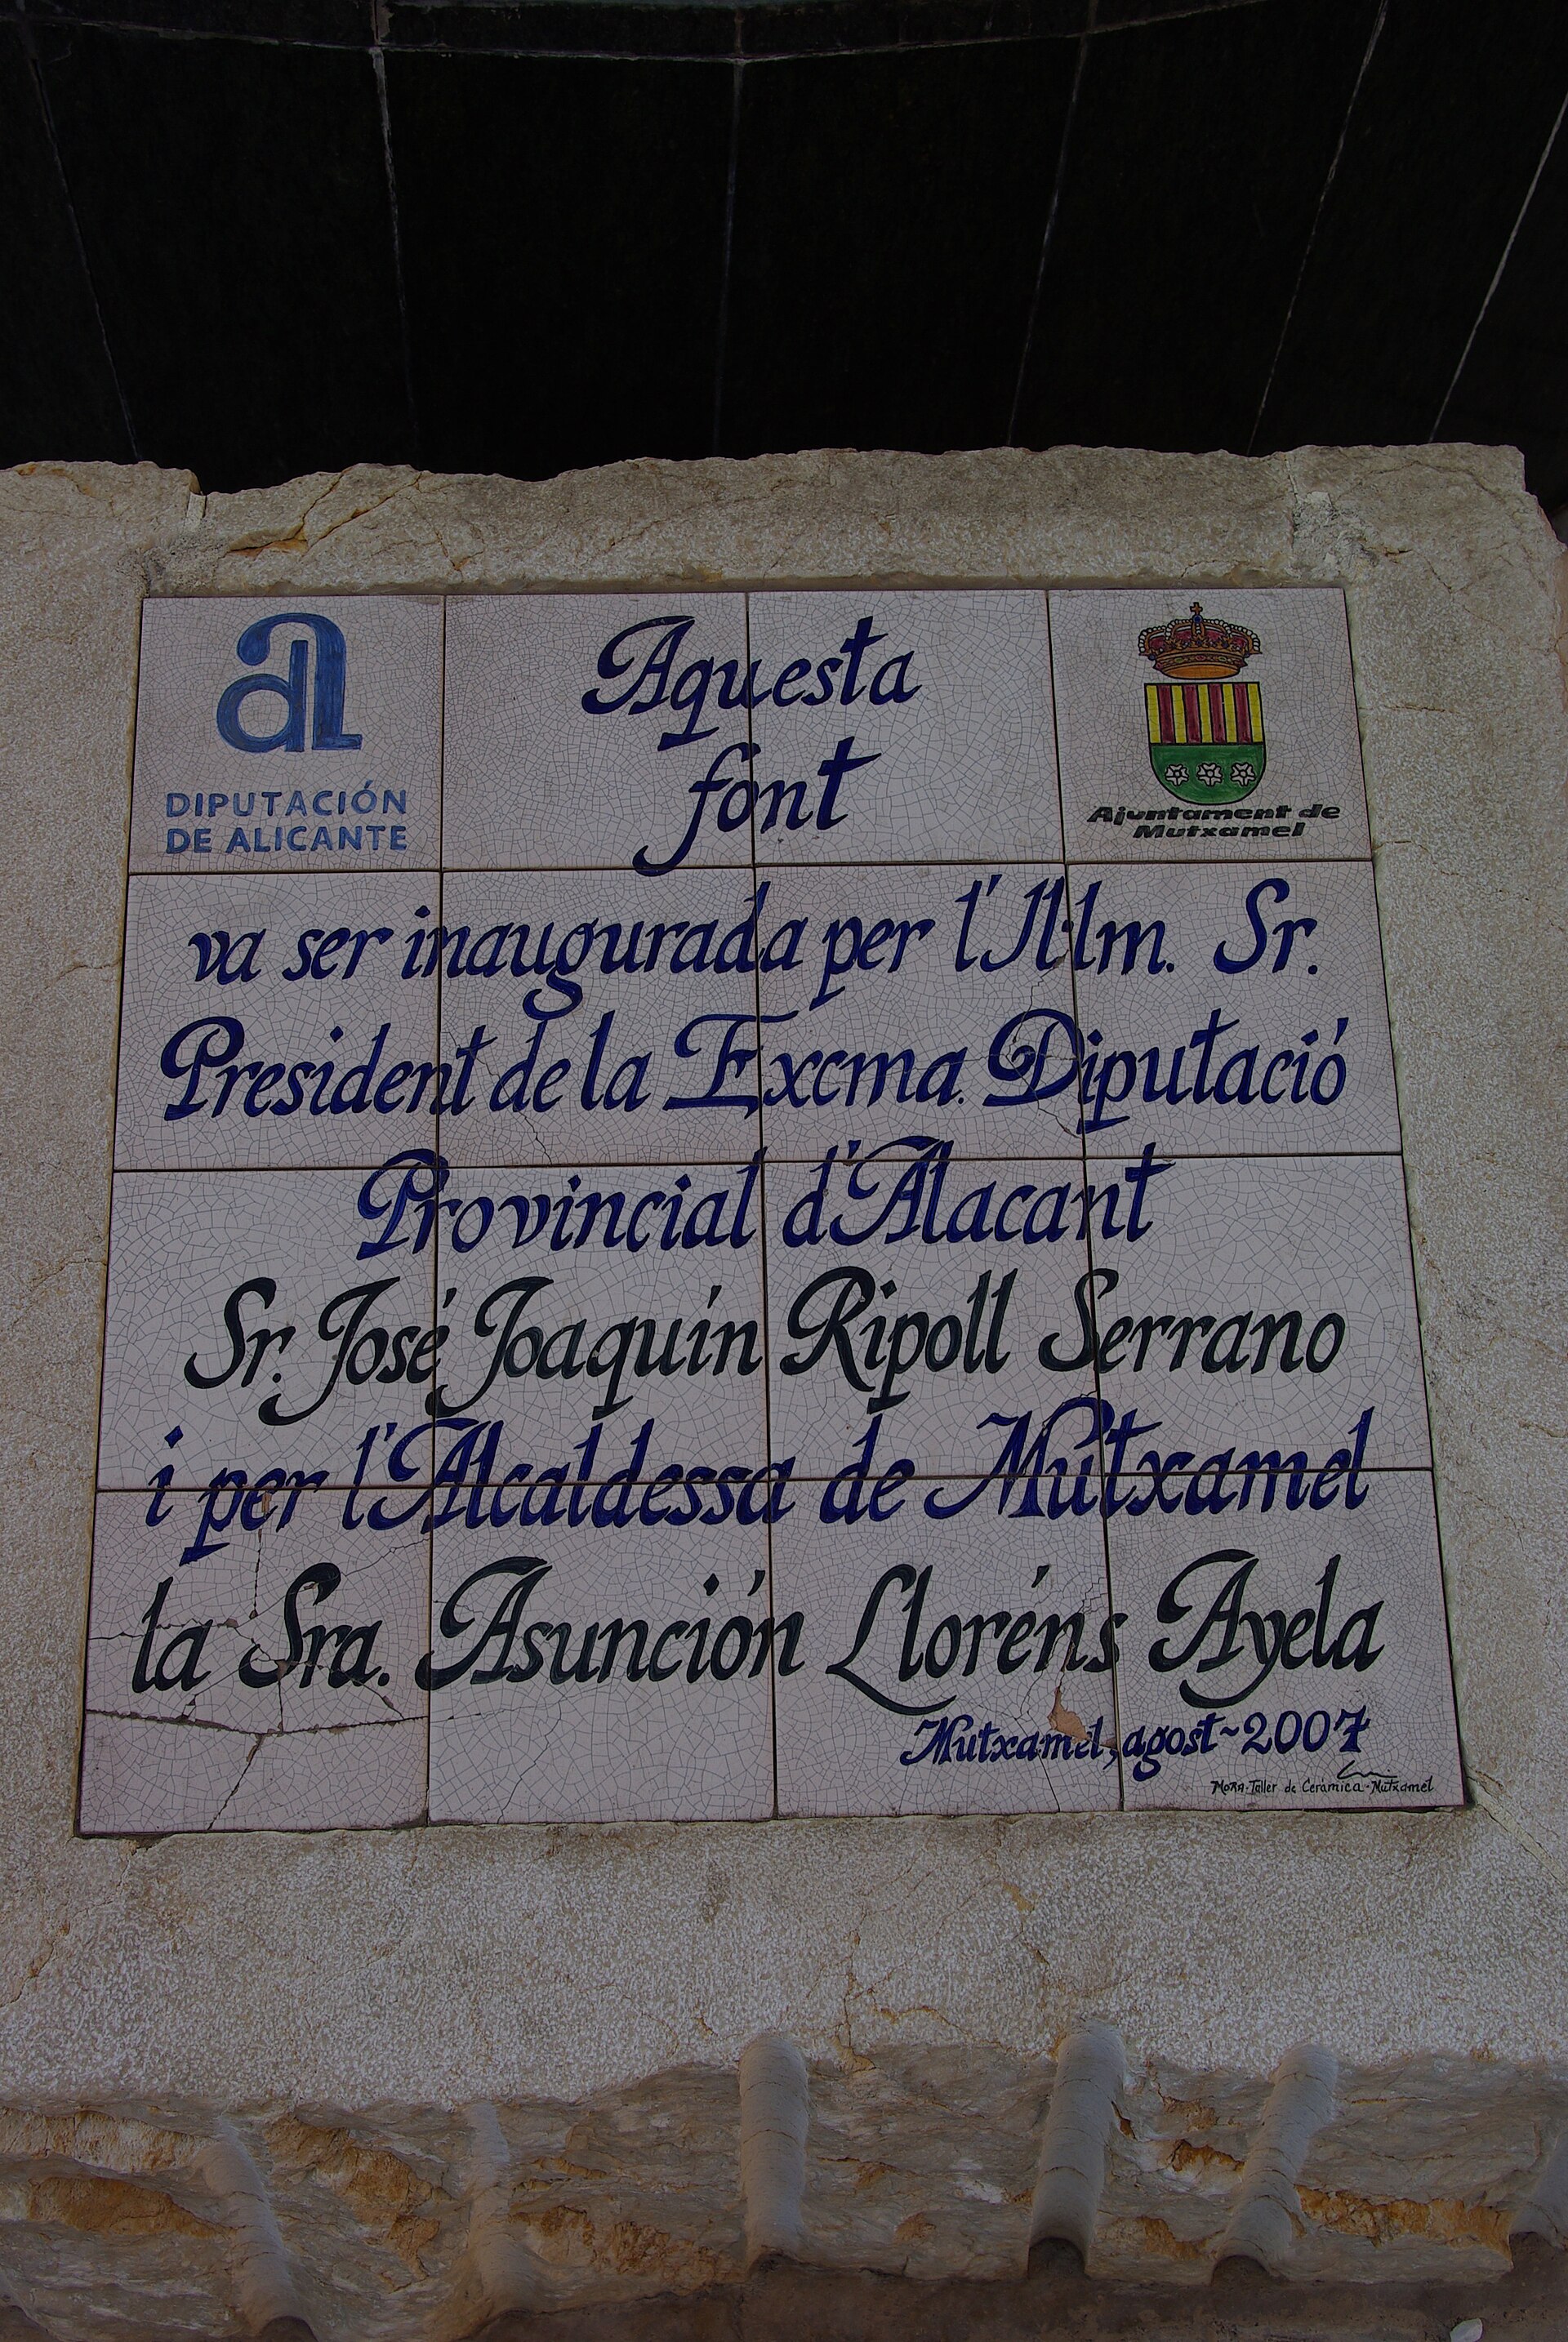 DIPUTACIÓN
DE ALICANTE
Aquesta
font
Ajuntament de
Mutxamel
va ser inaugurada per l'Il·lm. Sr.
President de la Excma. Diputació
Provincial d'Alacant
Sr. José Joaquín Ripoll Serrano
i per l'Alcaldessa de Mutxamel
la Sra. Asunción Lloréns Ayela
Mutxamel, agost~2007
MORA-Taller de Ceràmica-Mutxamel